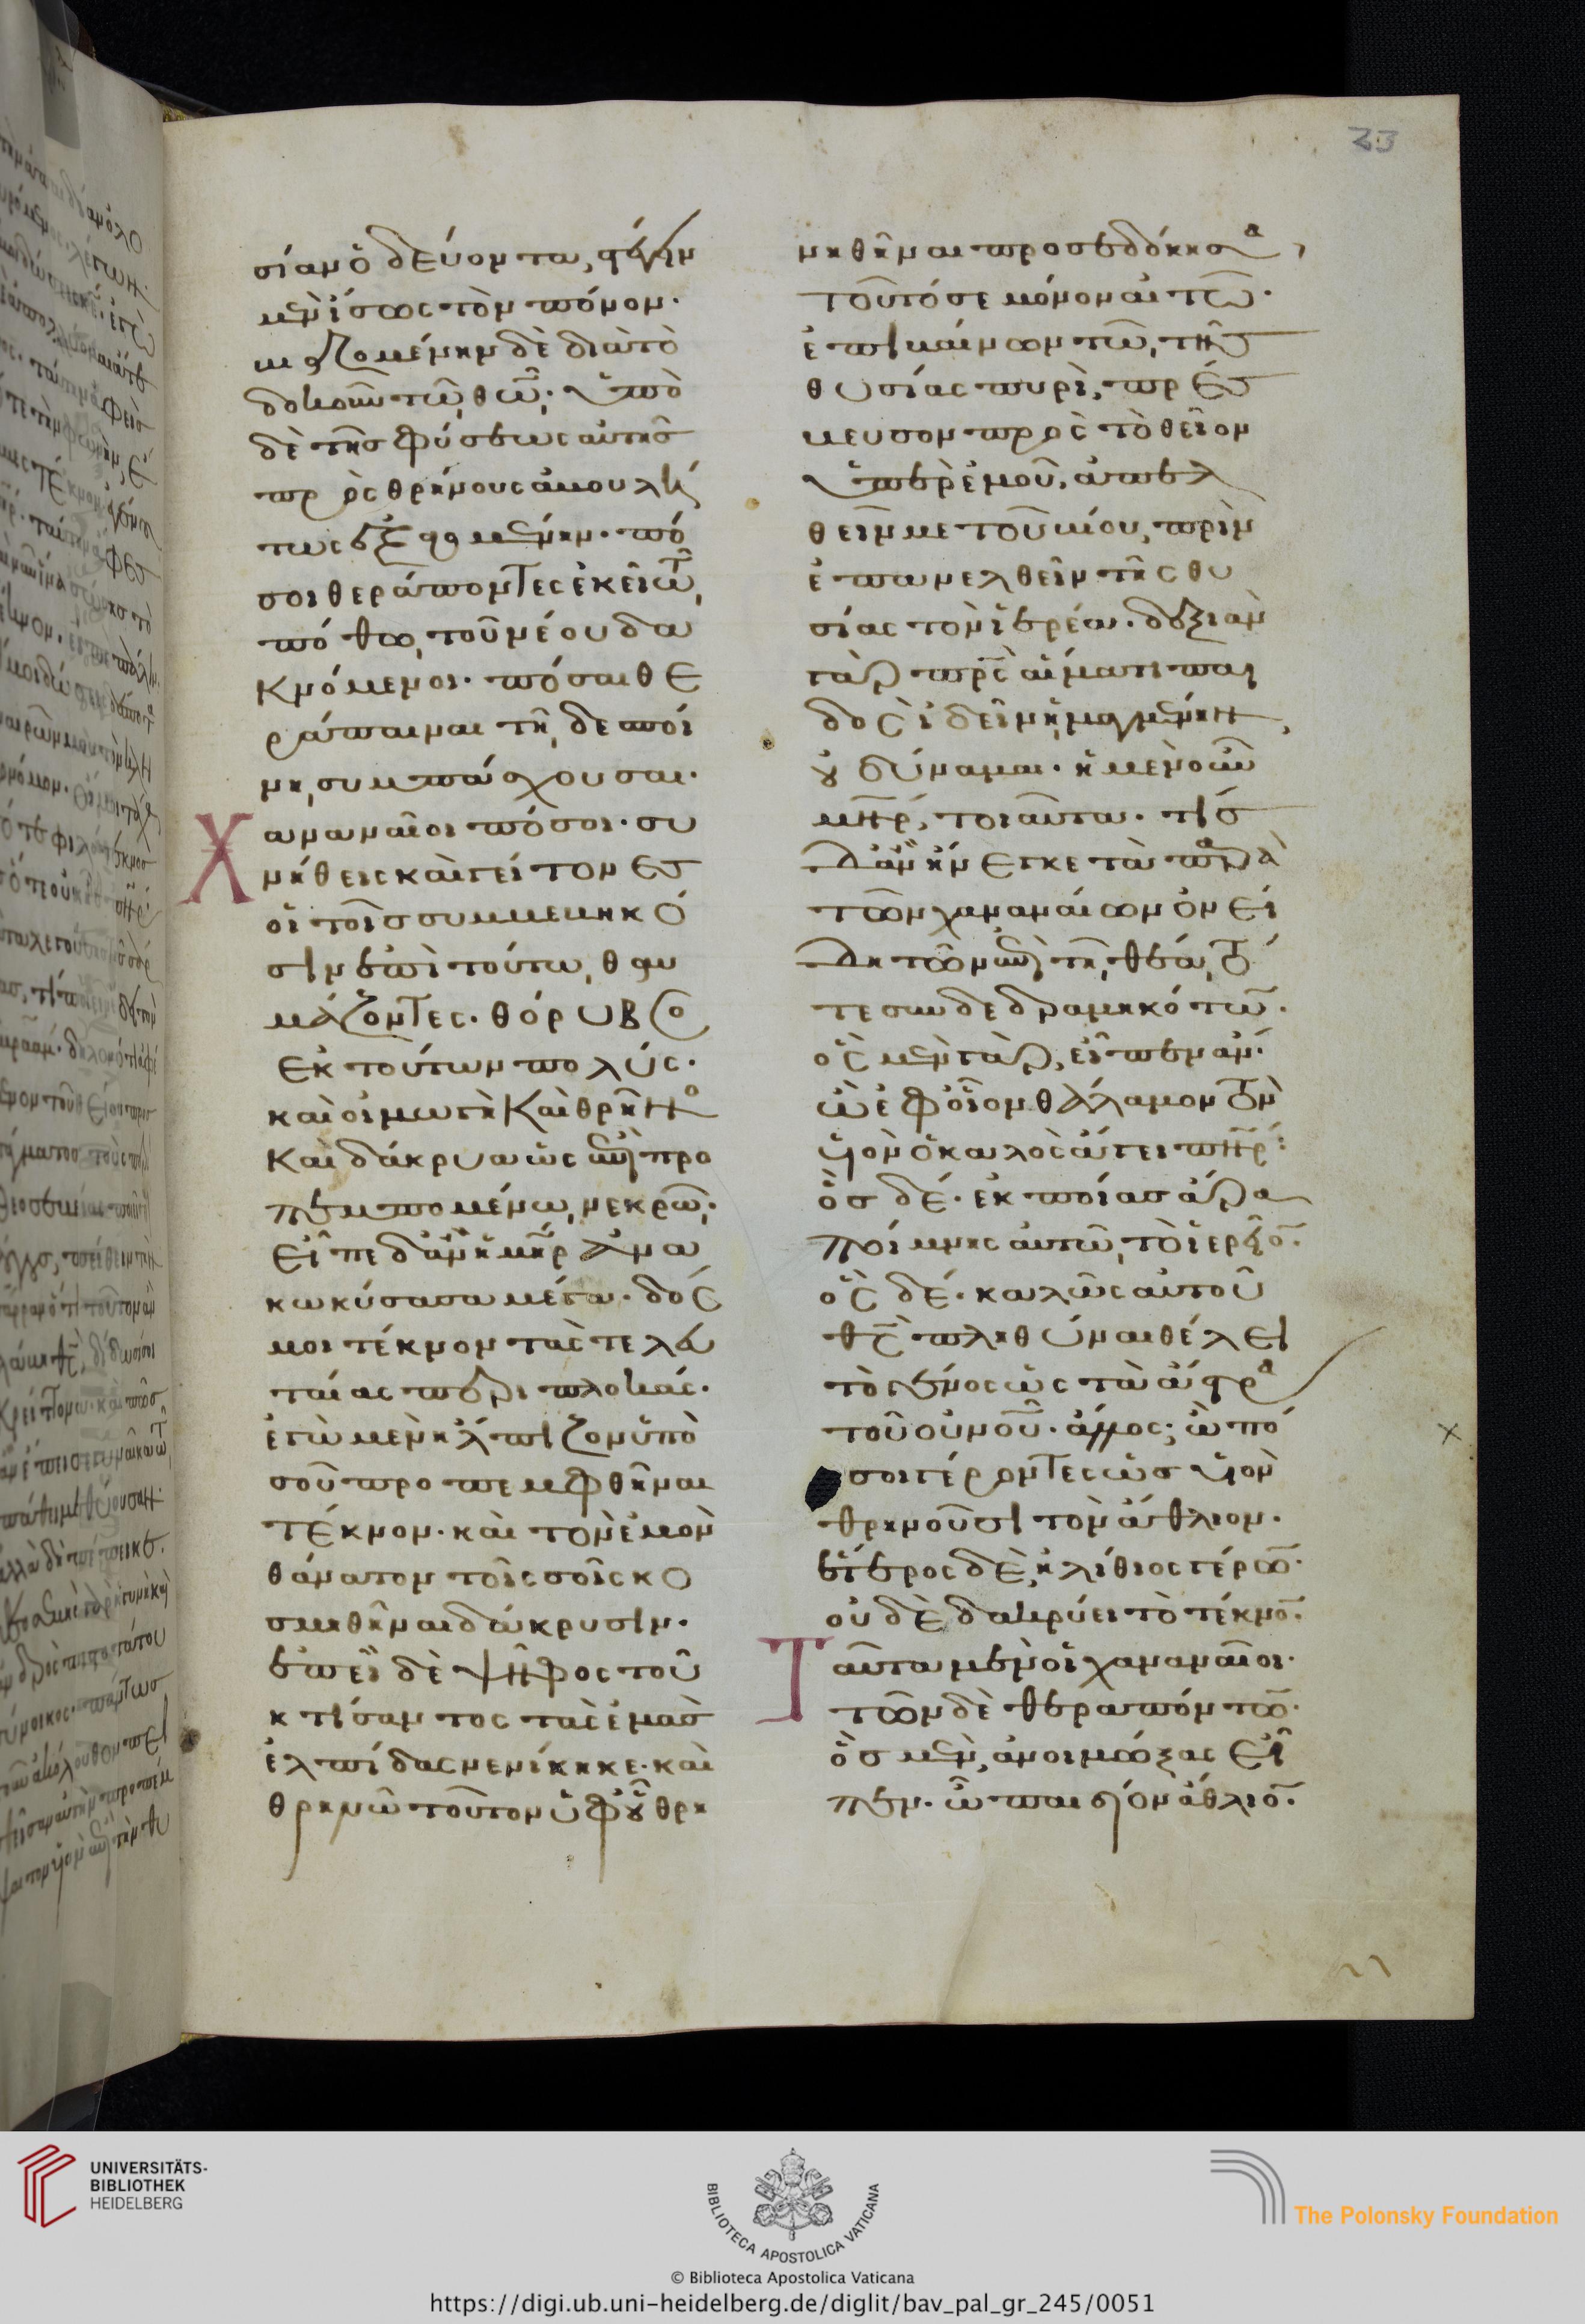 23
σίαν ὁδεύοντα, φέρειν
μὲν ἴσως τὸν πόνον.
μαζομένην δὲ διὰ τὸ
δοκοῦν τῷ θεῷ. ὑπὸ
δὲ τῆς φύσεως αὐτῆς
πρὸς θρήνους ἀκουλή
τως
σοι θεράποντες ἐκεῖ τῷ
πόθῳ τοῦ νέου δα
κνόμενοι. πόσαι θε
ράπαιναι τῇ δεσποί
νῃ συμπάσχουσαι.
Χαναναῖοι πόσοι. συ
νήθεις καὶ γείτονες
οἱ τοῖς συμβεβηκό
σιν ἐπὶ τούτῳ θαυ
μάζοντες. θόρυβος
ἐκ τούτων πολύς.
καὶ οἰμωγὴ καὶ θρῆνος
καὶ δάκρυα ὡς ἐπὶ προ
πεμπομένῳ νεκρῷ.
εἶπε δ' ἂν ἡ μήτηρ ἀνα
κωκύσασα μέγα. δός
μοι τέκνον τὰς τελευ
ταίας περιπλοκάς.
ἐγὼ μὲν ἤλπιζον ὑπὸ
σοῦ προπεμφθῆναι
τέκνον. καὶ τὸν ἐμὸν
θάνατον τοῖς σοῖς κο
σμηθῆναι δάκρυσιν.
ἐπεὶ δὲ ψῆφος τοῦ
κτίσαντος τὰς ἐμὰς
ἐλπίδας νενίκηκε. καὶ
θρηνῶ τοῦτον ὑφ' οὗ θρη
νηθῆναι προσεδόκησα,
τοῦτό σε μόνον αἰτῶ.
ἐπικαίνων τῷ τῆς
θυσίας πυρὶ, πρέσ
βευσον πρὸς τὸ θεῖον
ὑπὲρ ἐμοῦ. ἀπελ
θεῖν με τοῦ βίου, πρὶν
ἐπανελθεῖν τῆς θυ
σίας τὸν ἱερέα. δεξιὰν
γὰρ πατρὸς αἵματι παι
δὸς ἰδεῖν
οὐ δύναμαι. ἡ μὲν οὖν
μήτηρ, τοιαῦτα. τίς
δ' ἂν ἤνεγκε τὰ παρὰ
τῶν χαναναίων ὀνεί
δη τῶν ἐπὶ τῇ θέᾳ τό
τε συνδεδραμηκότων.
ὃς μὲν γὰρ, εἶπεν ἄν.
ὢ ἐφ' οἷον θάλαμον τὸν
υἱὸν ὁ καλὸς ἄγει πατήρ.
ὃς δέ. ἐκ ποίας ἄρα
ποίμνης αὐτῷ τὸ ἱερεῖον.
ὃς δέ. καλῶς αὐτοῦ
θεὸς πληθῦναι θέλει
τὸ γένος ὡς τὰ ἄστρα
τοῦ οὐνοῦ. ἄλλος; ὢ πό
σοι γέροντες ὡς υἱὸν
θρηνοῦσι τὸν ἄθλιον.
ἕτερος δὲ, ἠλίθιος γέρων.
οὐδὲ δακρύει τὸ τέκνον.
Ταῦτα μὲν οἱ χαναναῖοι.
τῶν δὲ θεραπόντων.
ὃς μὲν, ἀνοιμώξας εἶ
πεν. ὢ παιδίον ἄθλιον.
UNIVERSITÄTS-
BIBLIOTHEK
HEIDELBERG
BIBLIOTECA APOSTOLICA VATICANA
The Polonsky Foundation
© Biblioteca Apostolica Vaticana
https://digi.ub.uni-heidelberg.de/diglit/bav_pal_gr_245/0051